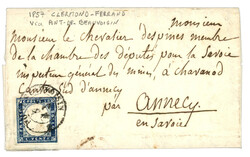 1857 CLERMOND-FERRAND
VIA PNT-DE-BEAUVOISIN
Monsieur
Monsieur le Chevalier des membre
de la chambre des députés pour la Savoie
inspecteur général des mines, à Chavanod
Canton d'annecy
par annecy
en Savoie